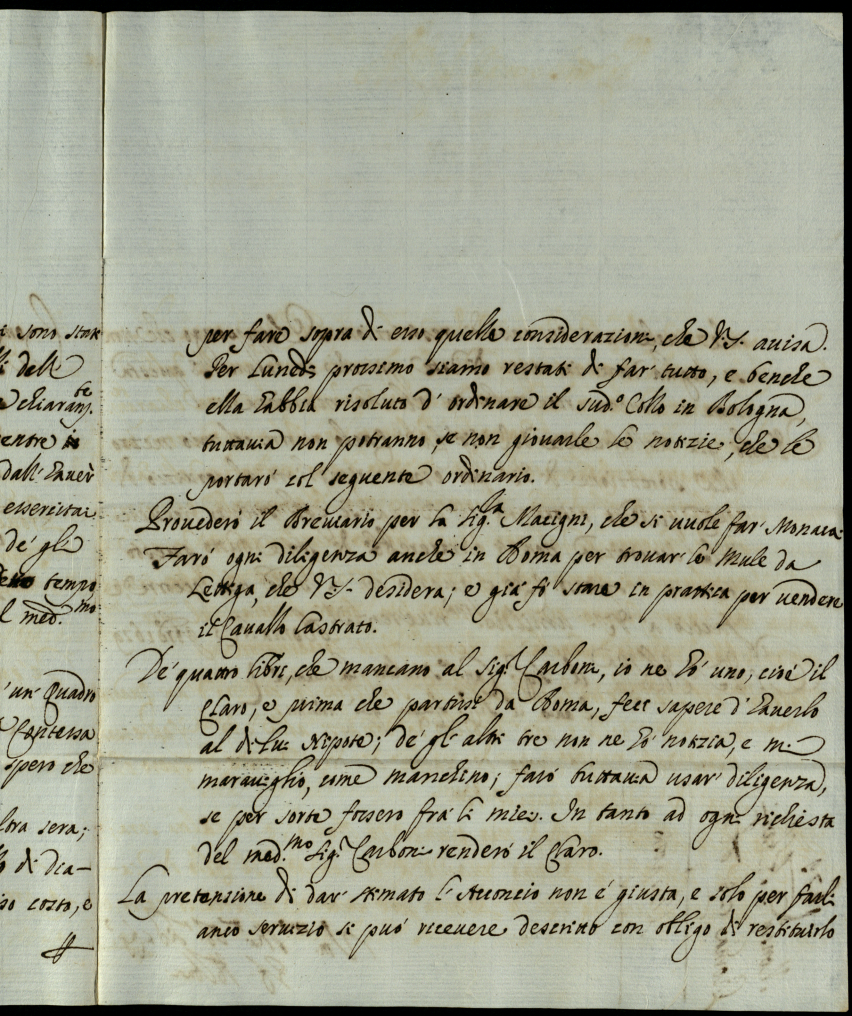 i sono state
li dell
chiaram.te
entre in
dall'haver
essercitar
de' gli
tempo
l med.mo
un Quadro
Contessa
spero che
ltra sera;
di dia-
so costo, e
per fare sopra di esso quelle considerazioni, che V.S. avisa.
Per Lunedi prossimo siamo restati di far' tutto, e benche
ella habbia risoluto d' ordinare il sud.o Collo in Bologna,
tuttavia non potranno, se non giovarle le notizie, che le
portarò col seguente ordinario.
Provederò il Breviario per la Sig.ra Macigni, che si vuole far' Monaca.
Farò ogni diligenza anche in Roma per trovar' le Mule da
Lettiga, che V.S. desidera; e già fò stare in prattica per vendere
il Cavallo Castrato.
De' quattro libri, che mancano al Sig.r Carboni, io ne hò uno, cioè il
Claro, e prima che partissi da Roma, feci sapere d' haverlo
al di lui Nipote; de' gli altri tre non ne hò notizia, e mi
maraviglio, come manchino; farò tuttavia usar' diligenza,
se per sorte fossero frà li miei. In tanto ad ogni richiesta
del med.mo Sig.r Carboni renderò il Claro.
La pretensione di dar' stimato l'Acconcio non è giusta, e solo per farli
anco servizio si può ricevere descritto con obligo di restituirlo